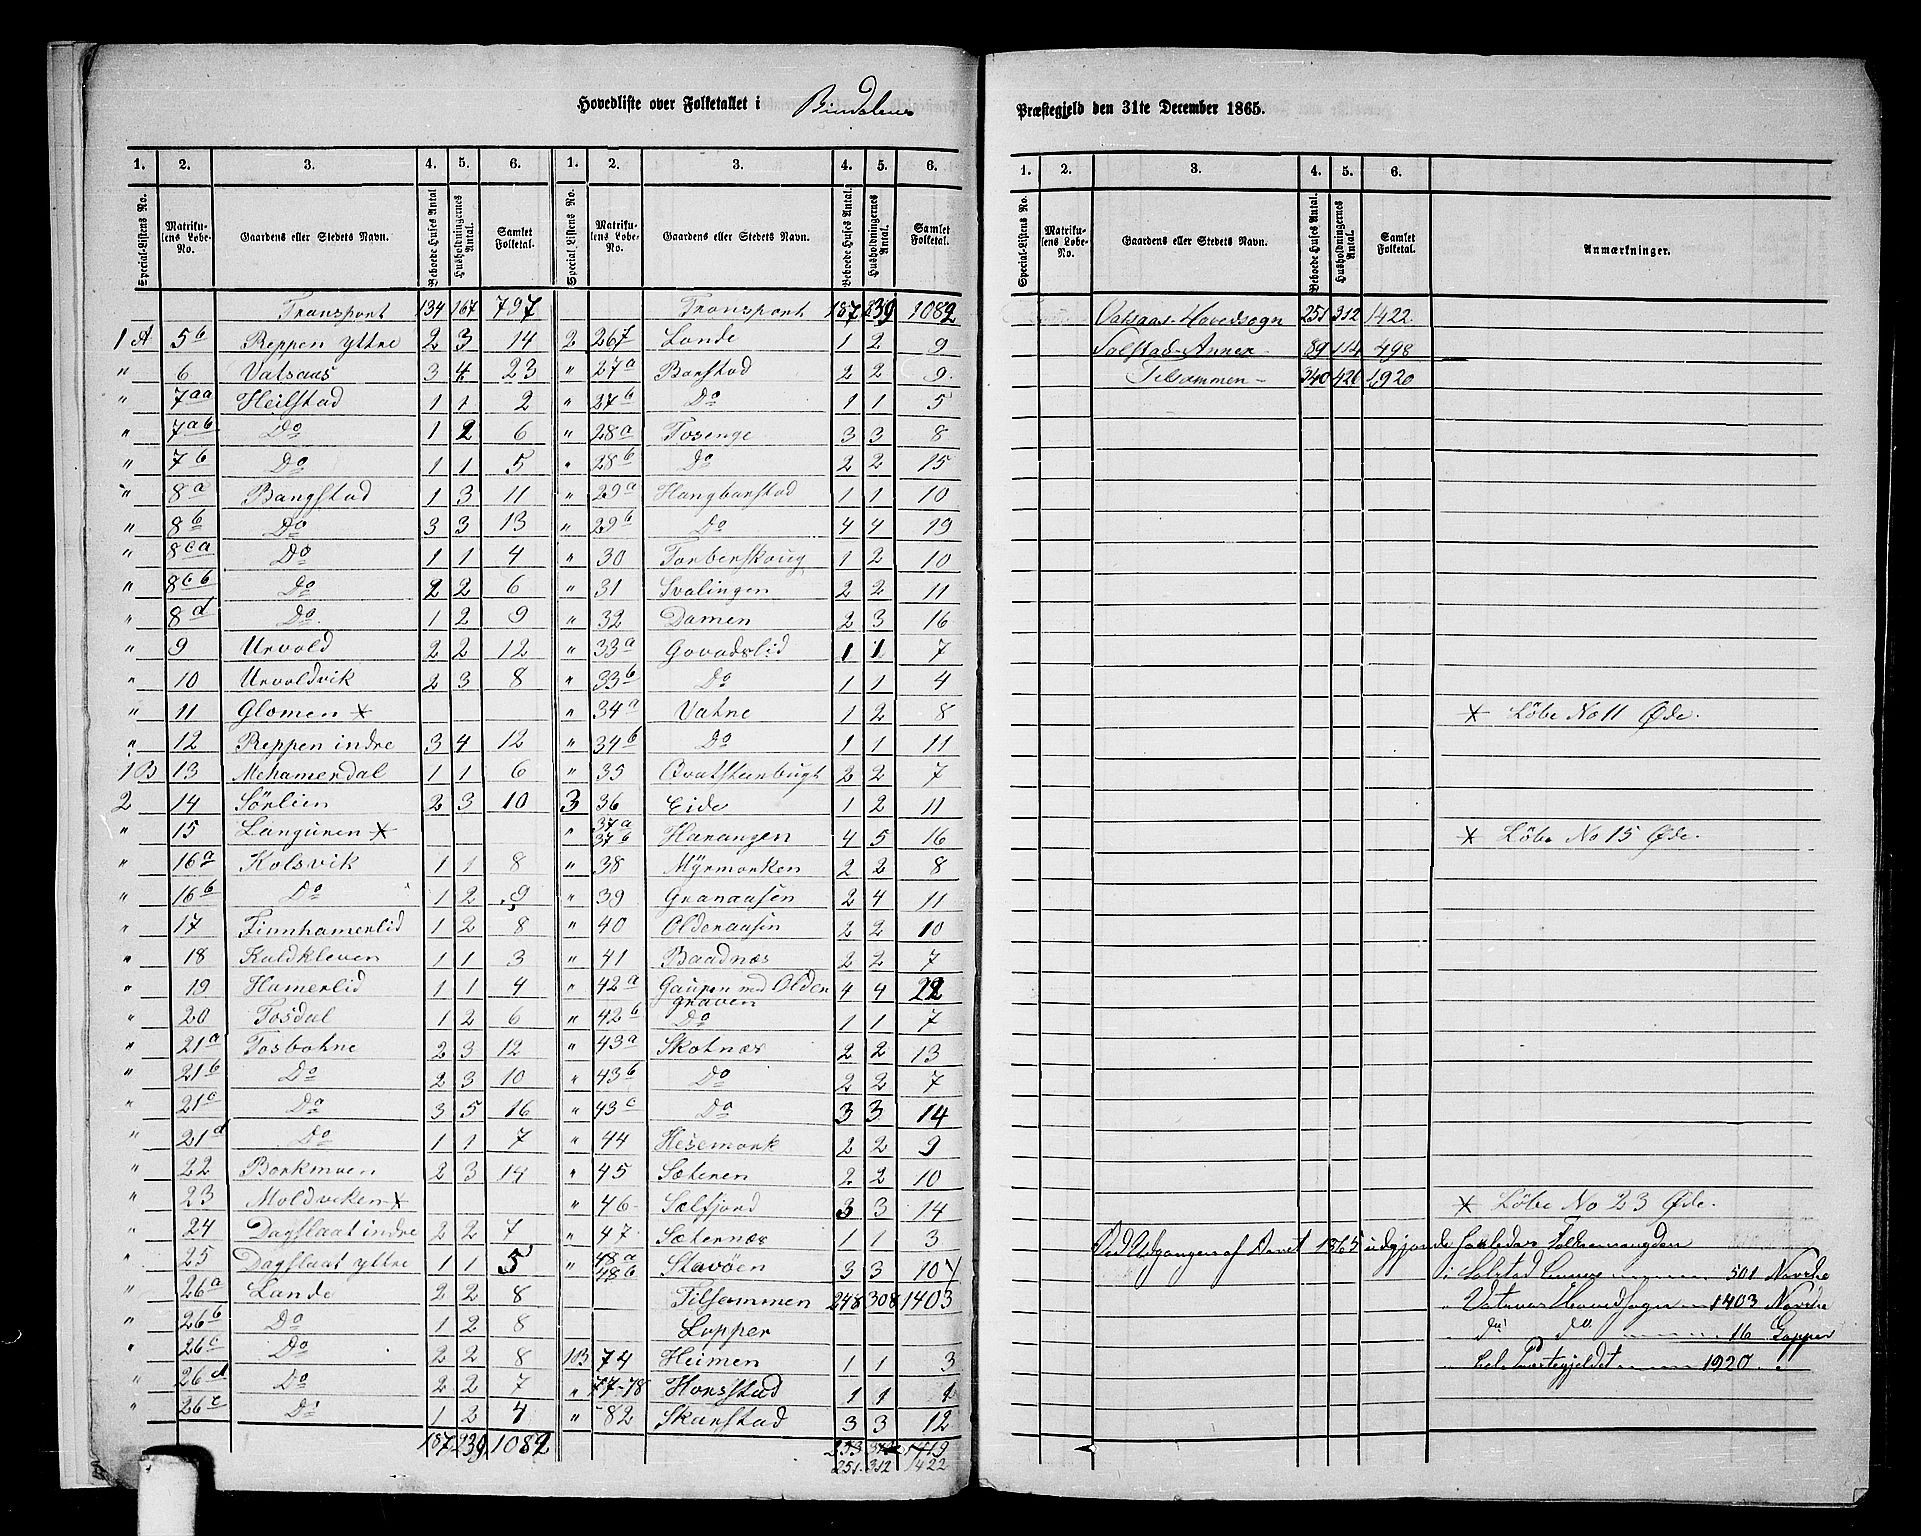 Hovedliste over Folketallet i Bindalens Præstegjeld den 31te December 1865.
1. 2. 3. 4. 5. 6. 1. 2. 3. 4. 5. 6.
Special-Listens No. Matrikulens Løbe-No. Gaardens eller Stedets Navn. Beboede Huses Antal Husholdningernes Antal. Samlet Folketal. Special Listens No. Matrikulens Løbe-No. Gaardens eller Stedets Navn. Beboede Huses Antal. Husholdningernes Antal. Samlet Folketal.
Transport 134 167 797
1 A 5b Reppen yttre 2 3 14
" 6 Vatsaas 3 4 23
" 7aa Heilstad 1 1 2
" 7ab Do 1 2 6
" 7b Do 1 1 5
" 8a Bangstad 1 3 11
" 8b Do 3 3 13
" 8ca Do 1 1 4
" 8cb Do 2 2 6
" 8d Do 1 2 9
" 9 Urvold 2 2 12
" 10 Urvoldvik 2 3 8
" 11 Glomen ×
" 12 Reppen indre 3 4 12
1B 13 Mehamerdal 1 1 6
2 14 Sørlien 2 3 10
" 15 Languren ×
" 16a Kolsvik 1 1 8
" 16b Do 1 2 9
" 17 Finnhamerlid 1 2 8
" 18 Kuldkleven 1 1 3
" 19 Hamerlid 1 1 4
" 20 Tosdal 1 2 6
" 21a Tosbotne 2 3 12
" 21b Do 2 3 10
" 21c Do 3 5 16
" 21d Do 1 1 7
" 22 Borkmoen 2 3 14
" 23 Moldviken ×
" 24 Dagslaat indre 2 2 7
" 25 Dagslaat yttre 1 1 5
" 26a Lande 2 2 8
" 26b Do 1 2 8
" 26c Do 2 2 8
" 26d Do 2 2 7
" 26e Do 1 2 4
187 239 1082
Transport 187 239 1082
2 267 Lande 1 2 9
" 27a Barstad 2 2 9
" 27b Do 1 1 5
" 28a Tosenge 3 3 8
" 28b Do 2 2 15
" 29a Hangbarstad 1 1 10
" 29b Do 4 4 19
" 30 Torberskoug 1 2 10
" 31 Svalingen 2 2 11
" 32 Damen 2 3 16
" 33a Govadslid 1 1 7
" 33b Do 1 1 4
" 34a Vatne 1 2 8
" 34b Do 1 1 11
" 35 Qvatsteenbugt 2 2 7
3 36 Eide 1 2 11
" 37a 37b Harangen 4 5 16
" 38 Myrmarken 2 2 8
" 39 Granaasen 2 4 11
" 40 Olderaasen 2 2 10
" 41 Baadnæs 2 2 7
" 42a Gaupen med Oldergraven 4 4 22
" 42b Do 1 1 7
" 43a Skotnæs 2 2 13
" 43b Do 2 2 7
" 43c Do 3 3 14
" 44 Hesemark 2 2 9
" 45 Sæteren 2 2 10
" 46 Sælfjord 3 3 14
" 47 Sæternæs 1 1 3
" 48a 48b Stavøen 3 3 10
Tilsammen 248 308 1403
Lapper
1B 74 Heimen 1 1 3
" 77-78 Horsstad 1 1 1
" 82 Skarstad 3 3 12
253 1419
251 312 1422
1. 2. 3. 4. 5. 6.
Special-Listens No. Matrikulens Løbe-No. Gaardens eller Stedets Navn. Beboede Huses Antal. Husholdningernes Antal. Samlet Folketal. Anmærkninger.
Vatsaas Hovedsogn 251 312 1422
Solstad Annex 89 114 498
Tilsammen 340 426 1920
× Løbe No 11 Øde.
× Løbe No 15 Øde.
× Løbe No 23 Øde.
Ved Udgangen af Aaret 1865 udgjorde saaledes Folkemængden
i Solstad Annex 501 Norske
" Vatsaas Hovedsogn 1403 Norske
" do do 16 Lapper
" hele Præstegjeldet 1920